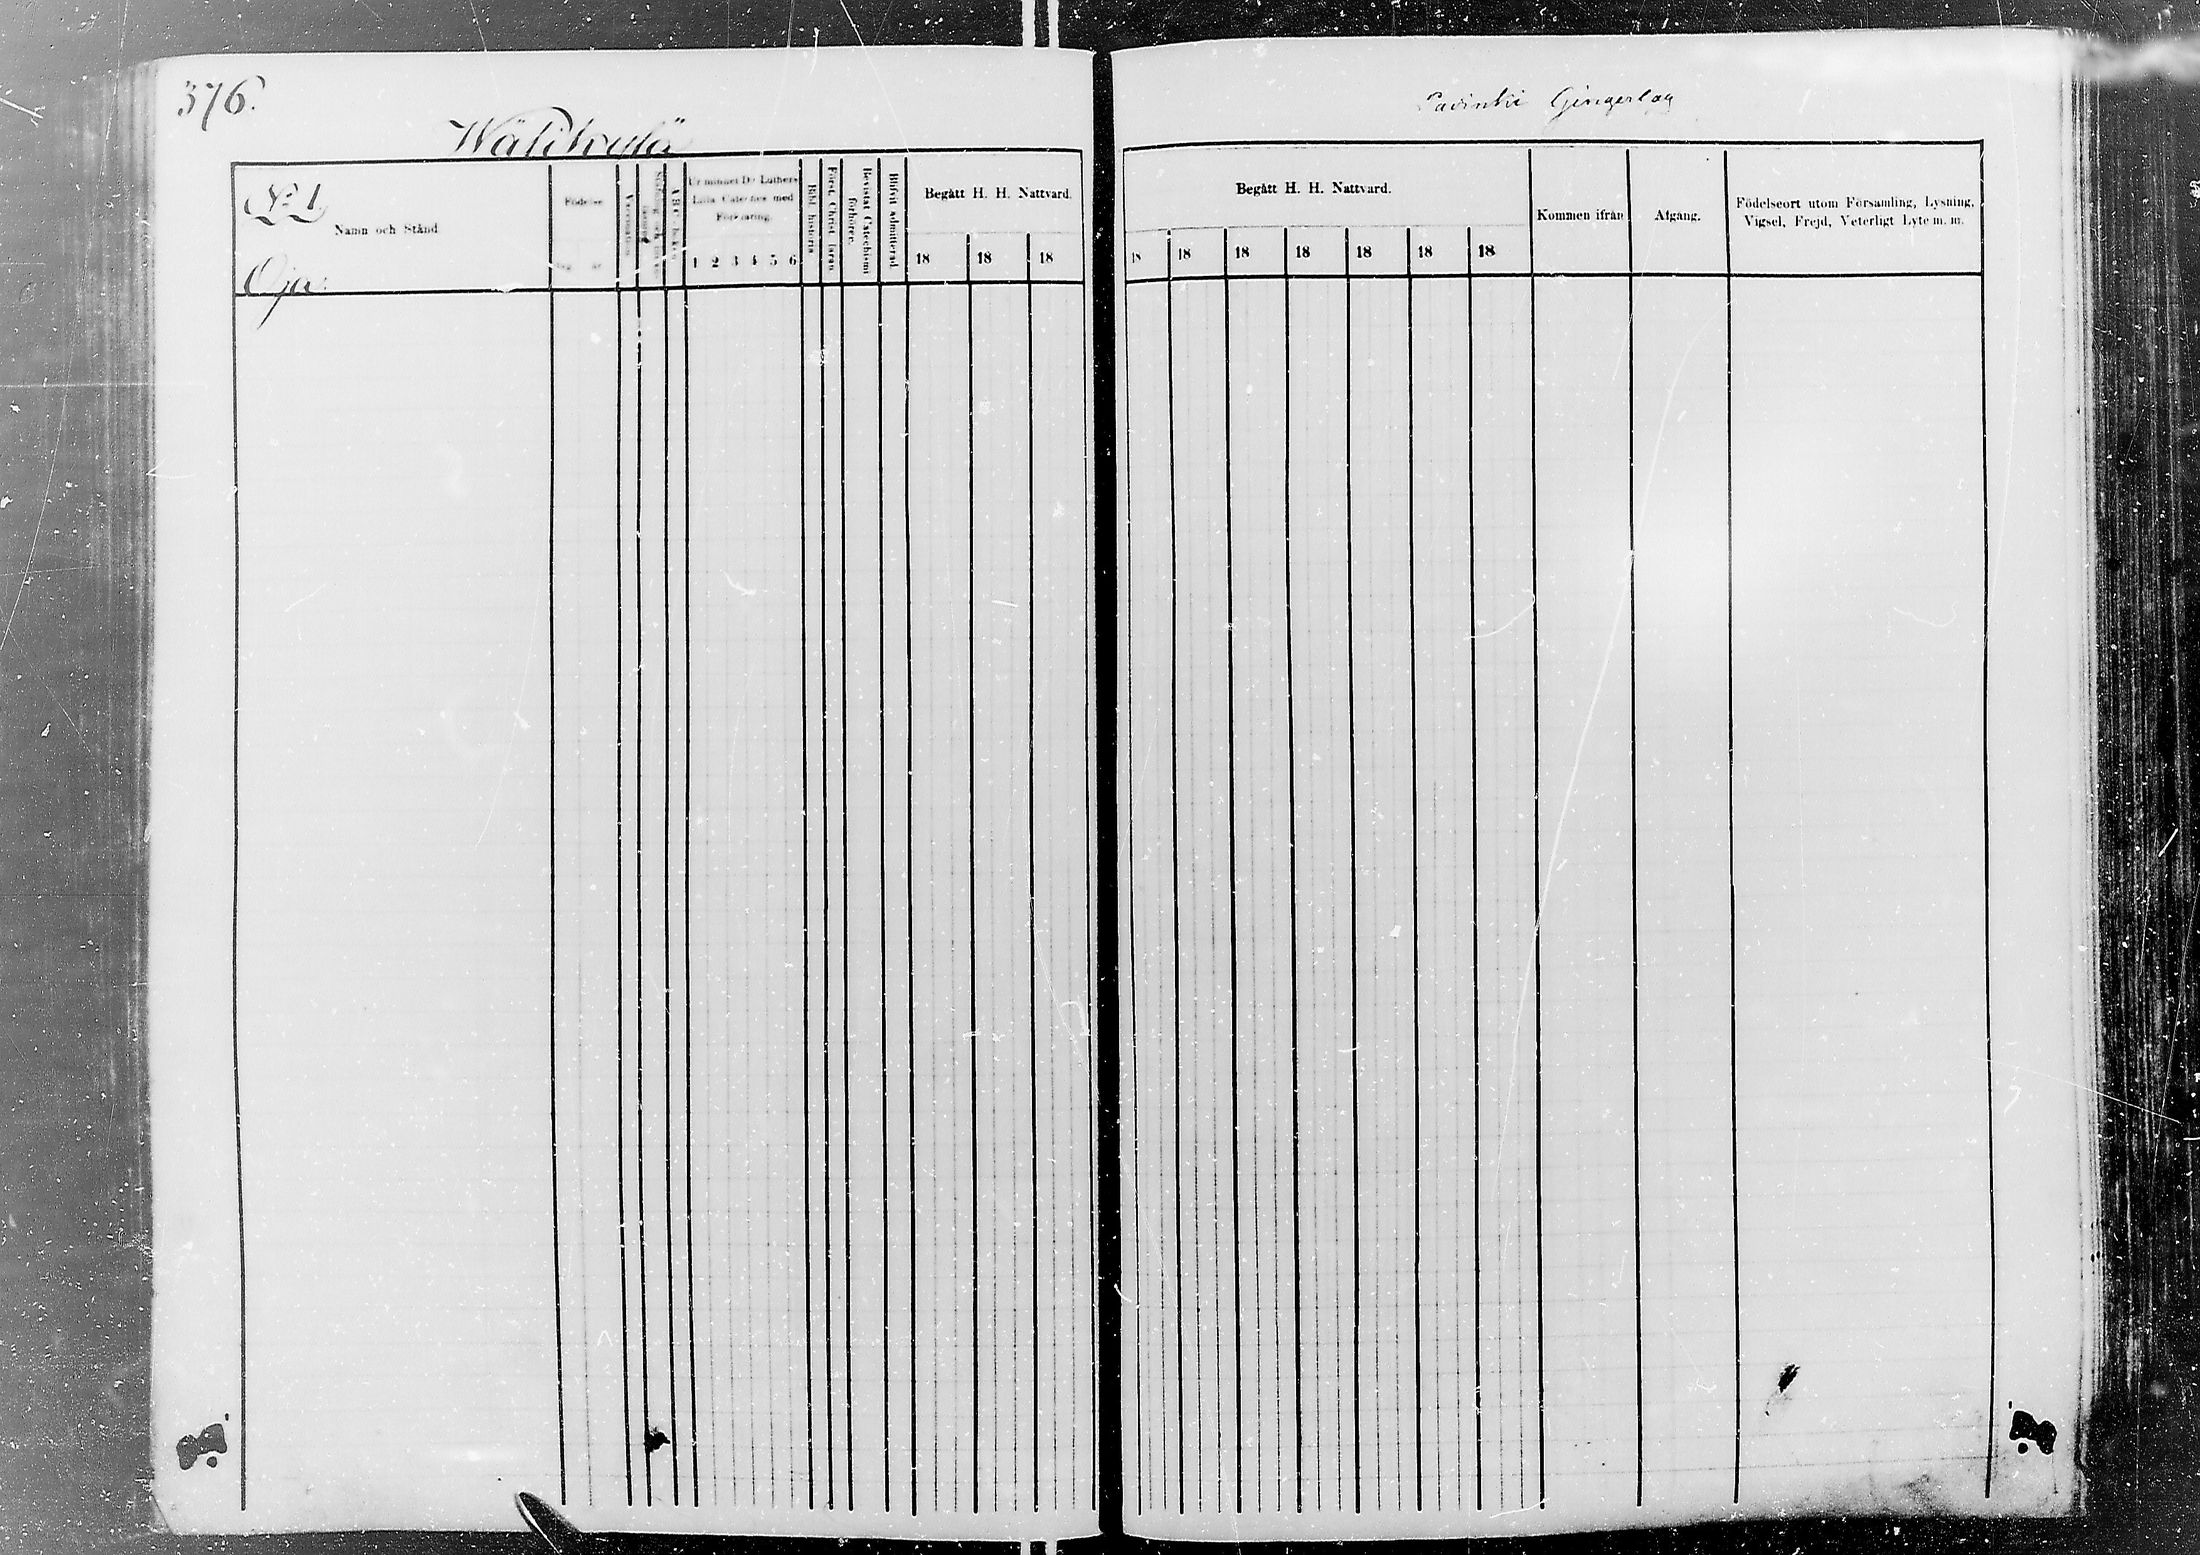 376.
Wälikylä
Gingerlag
№ 1
Namn och Stånd
Oja.
Födelse
Vaccination
A B C boken
Ur minnet D:r Luthers
Lilla Cateches med
Förklaring.
1 2 3 4 5 6
Bibl. historia
Först. Christ. läran
Bevistat Catechismi
förhören.
Blifvit admitterad.
Begått H. H. Nattvard.
18 18 18
Begått H. H. Nattvard.
18 18 18 18 18 18 18
Kommen ifrån
Afgång.
Födelseort utom Församling, Lysning,
Vigsel, Frejd, Veterligt Lyte m. m.